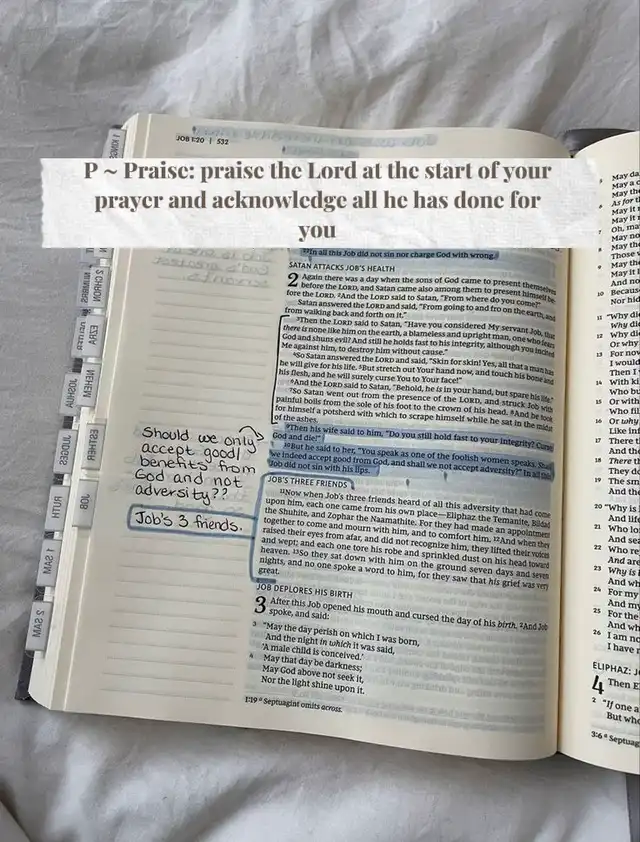 JOB 1:20 | 532
P ~ Praise: praise the Lord at the start of your
prayer and acknowledge all he has done for
you
22In all this Job did not sin nor charge God with wrong.
SATAN ATTACKS JOB'S HEALTH
2 Again there was a day when the sons of God came to present themselves
before the LORD, and Satan came also among them to present himself be-
fore the LORD. 2And the LORD said to Satan, "From where do you come?"
Satan answered the LORD and said, "From going to and fro on the earth, and
from walking back and forth on it."
3Then the LORD said to Satan, "Have you considered My servant Job, that
there is none like him on the earth, a blameless and upright man, one who fears
God and shuns evil? And still he holds fast to his integrity, although you incited
Me against him, to destroy him without cause."
4So Satan answered the LORD and said, "Skin for skin! Yes, all that a man has
he will give for his life. 5But stretch out Your hand now, and touch his bone and
his flesh, and he will surely curse You to Your face!"
6And the LORD said to Satan, "Behold, he is in your hand, but spare his life."
7So Satan went out from the presence of the LORD, and struck Job with
painful boils from the sole of his foot to the crown of his head. 8And he took
for himself a potsherd with which to scrape himself while he sat in the midst
of the ashes.
9Then his wife said to him, "Do you still hold fast to your integrity? Curse
God and die!"
10But he said to her, "You speak as one of the foolish women speaks. Shall
we indeed accept good from God, and shall we not accept adversity?" In all this
Job did not sin with his lips.
Should we only
accept good/
benefits from
God and not
adversity??
JOB'S THREE FRIENDS
Job's 3 friends.
11Now when Job's three friends heard of all this adversity that had come
upon him, each one came from his own place—Eliphaz the Temanite, Bildad
the Shuhite, and Zophar the Naamathite. For they had made an appointment
together to come and mourn with him, and to comfort him. 12And when they
raised their eyes from afar, and did not recognize him, they lifted their voices
and wept; and each one tore his robe and sprinkled dust on his head toward
heaven. 13So they sat down with him on the ground seven days and seven
nights, and no one spoke a word to him, for they saw that his grief was very
great.
JOB DEPLORES HIS BIRTH
3 After this Job opened his mouth and cursed the day of his birth. 2And Job
spoke, and said:
3 "May the day perish on which I was born,
And the night in which it was said,
'A male child is conceived.'
4 May that day be darkness;
May God above not seek it,
Nor the light shine upon it.
1:19 a Septuagint omits across.
2 CHRON
EZRA
NEHEM
JOSHUA
ESTHER
JUDGES
JOB
RUTH
1 SAM
2 SAM
11 "Why di
12 Why di
13 For no
14 With ki
15 Or with
16 Or why
17 There t
18 There t
19 The sm
20 "Why is
21 Who lo
22 Who re
23 Why is
24 For my
25 For the
26 I am no
I have n
ELIPHAZ: J
4 Then E
2 "If one a
But who
3:6 a Septuag